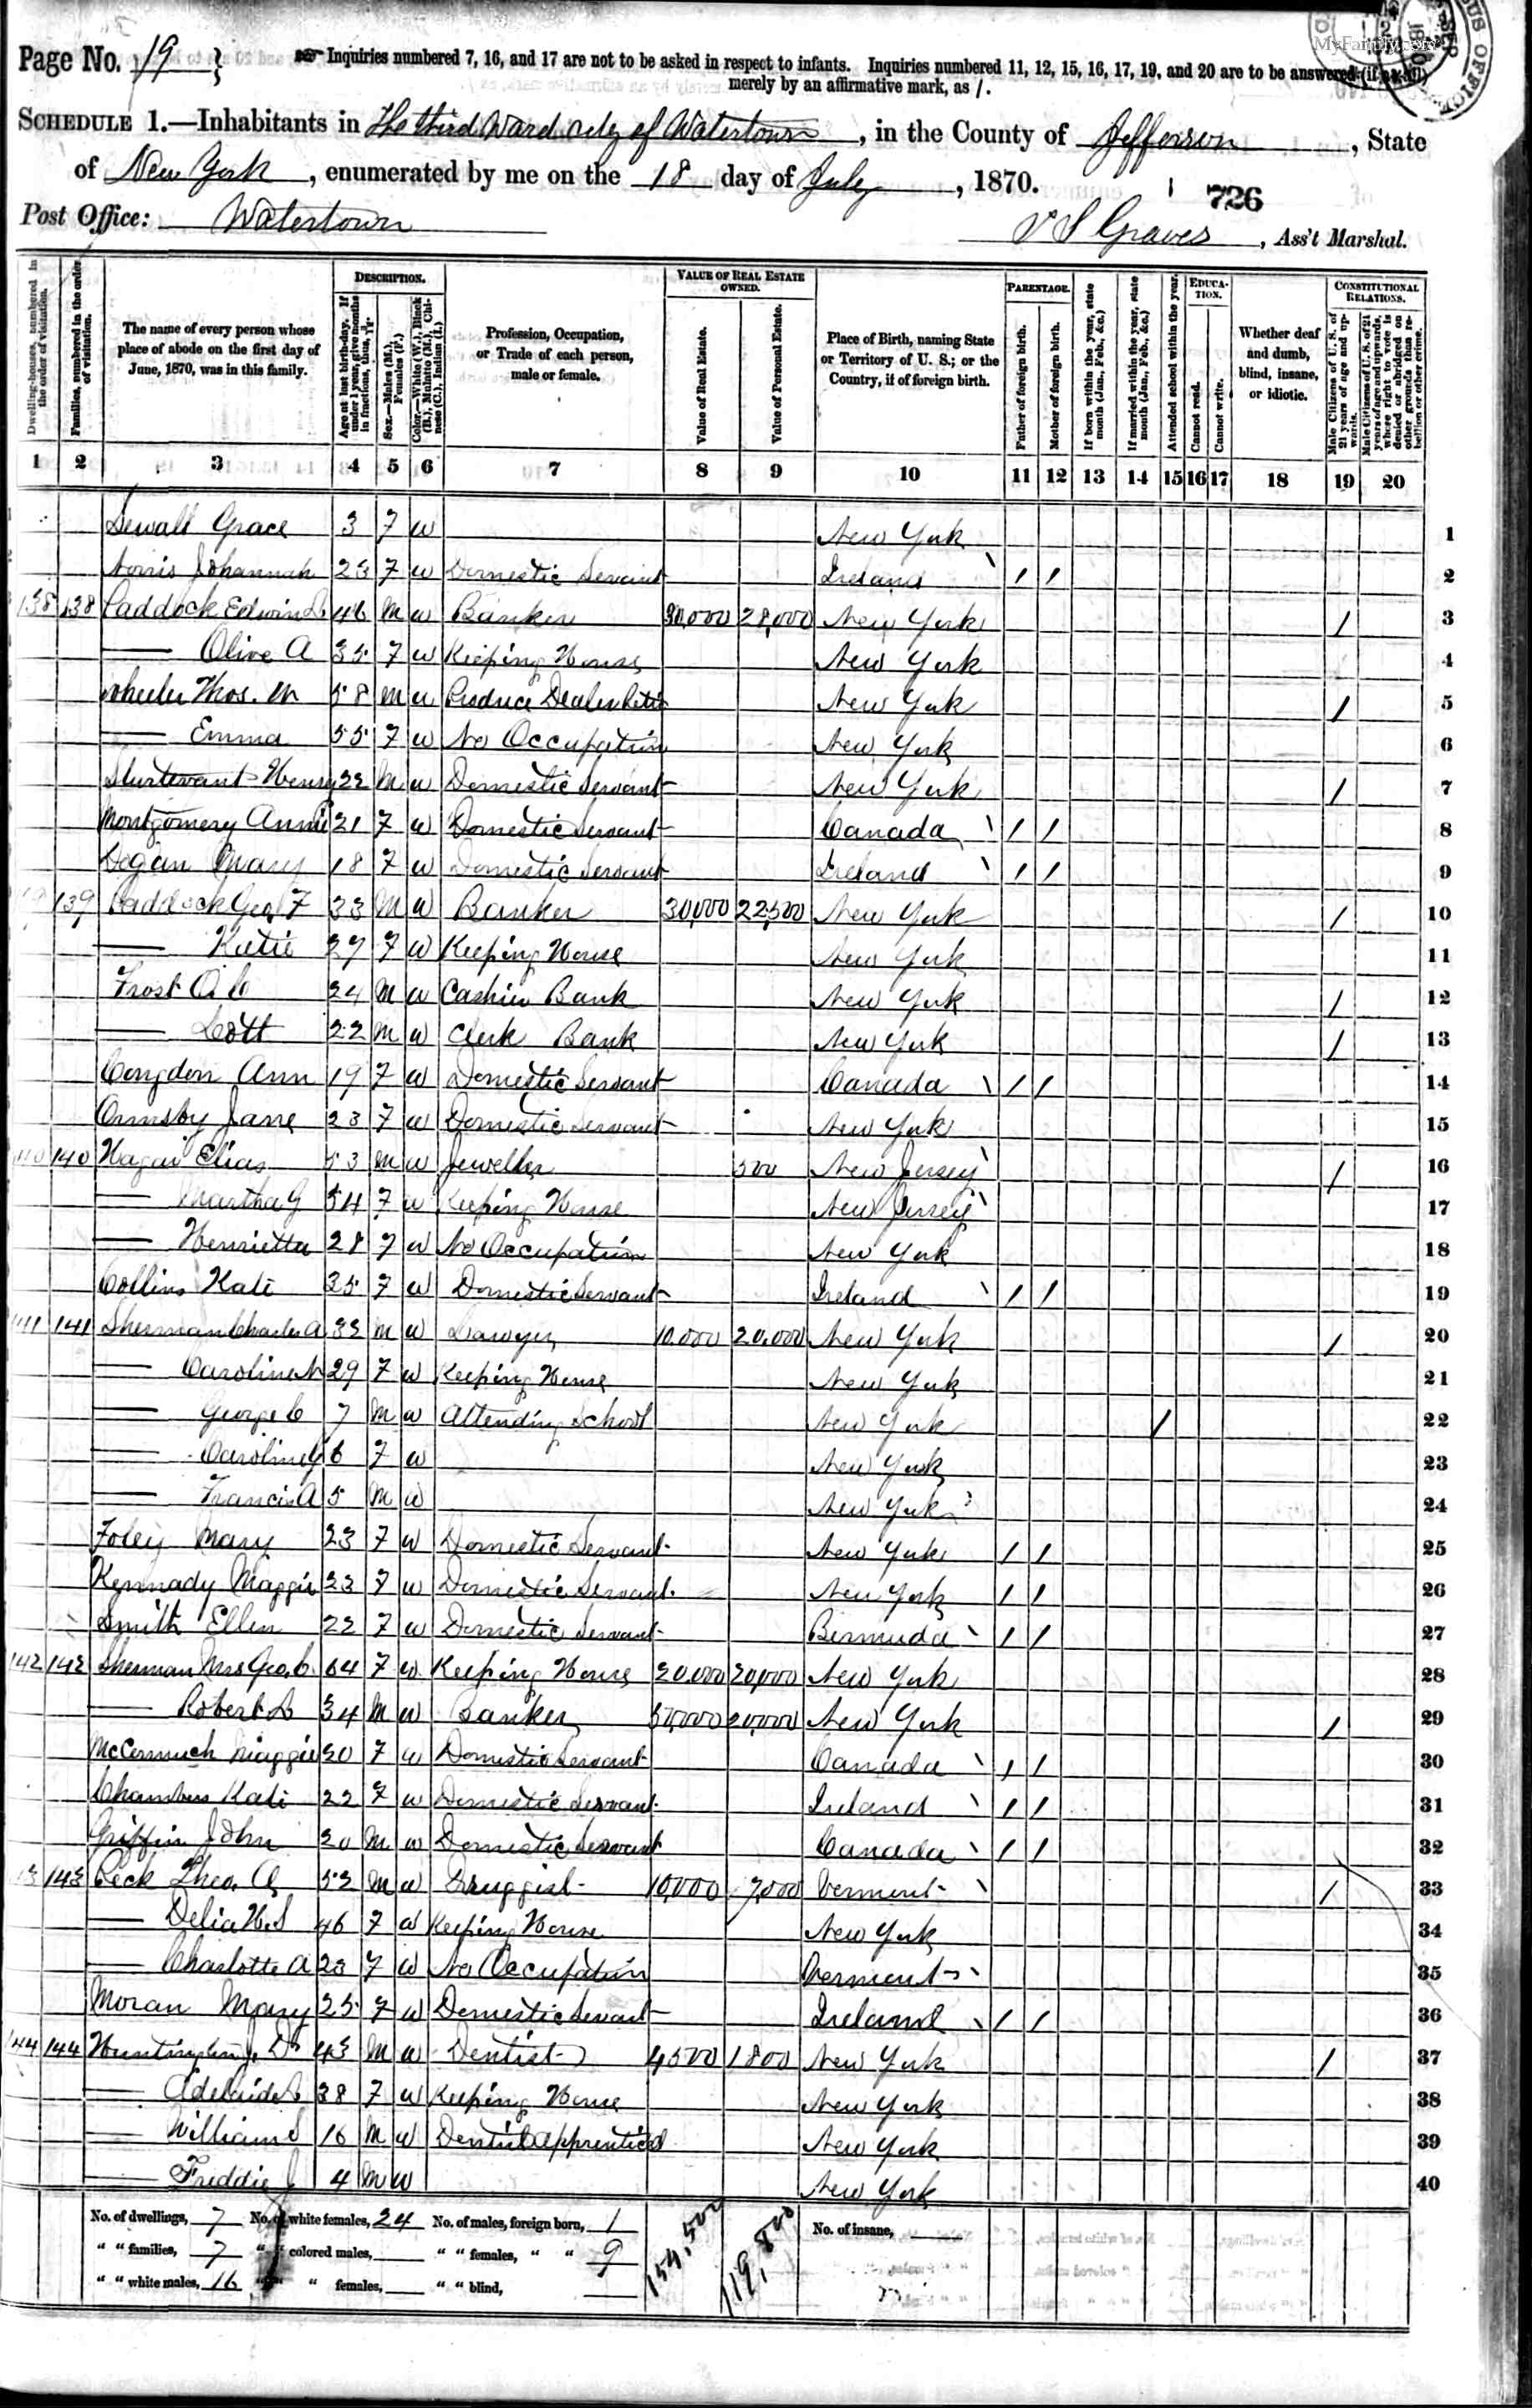 MyFamily.com
Page No. 19
Inquiries numbered 7, 16, and 17 are not to be asked in respect to infants. Inquiries numbered 11, 12, 15, 16, 17, 19, and 20 are to be answered (if at all)
merely by an affirmative mark, as /.
SCHEDULE 1.—Inhabitants in The third Ward city of Watertown, in the County of Jefferson, State
of New York, enumerated by me on the 18 day of July, 1870.
726
Post Office: Watertown
Graves, Ass't Marshal.
Dwelling-houses, numbered in the order of visitation.
Families, numbered in the order of visitation.
The name of every person whose place of abode on the first day of June, 1870, was in this family.
DESCRIPTION.
Age at last birth-day. If under 1 year, give months in fractions, thus,
Sex.—Males (M.), Females (F.)
Color.—White (W.), Black (B.), Mulatto (M.), Chinese (C.), Indian (I.)
Profession, Occupation, or Trade of each person, male or female.
VALUE OF REAL ESTATE OWNED.
Value of Real Estate.
Value of Personal Estate.
Place of Birth, naming State or Territory of U. S.; or the Country, if of foreign birth.
PARENTAGE.
Father of foreign birth.
Mother of foreign birth.
If born within the year, state month (Jan., Feb., &c.)
If married within the year, state month (Jan., Feb., &c.)
Attended school within the year.
EDUCATION.
Cannot read.
Cannot write.
Whether deaf and dumb, blind, insane, or idiotic.
CONSTITUTIONAL RELATIONS.
Male Citizens of U. S. of 21 years of age and upwards.
Male Citizens of U. S. of 21 years of age and upwards, whose right to vote is denied or abridged on other grounds than rebellion or other crime.
1 2 3 4 5 6 7 8 9 10 11 12 13 14 15 16 17 18 19 20
Sewall Grace 3 F W New York 1
Norris Johannah 23 F W Domestic Servant Ireland / / 2
138 138 Paddock Edwin L 46 M W Banker 30,000 28,000 New York / 3
— Olive A 35 F W Keeping House New York 4
Wheeler Thos. M 58 M W Produce Dealer New York / 5
— Emma 55 F W No Occupation New York 6
Sturtevant Henry 22 M W Domestic Servant New York / 7
Montgomery Annie 21 F W Domestic Servant Canada / / 8
Degan Mary 18 F W Domestic Servant Ireland / / 9
139 Paddock Geo F 33 M W Banker 30,000 22,500 New York / 10
— Katie 27 F W Keeping House New York 11
Frost 24 M W Cashier Bank New York / 12
— Scott 22 M W Clerk Bank New York / 13
Congdon Ann 19 F W Domestic Servant Canada / / 14
Ormsby Jane 23 F W Domestic Servant New York 15
140 140 Hagar Elias 53 M W Jeweller 500 New Jersey / 16
— Martha G 54 F W Keeping House New Jersey 17
— Henrietta 28 F W No Occupation New York 18
Collins Kate 35 F W Domestic Servant Ireland / / 19
141 141 Sherman Charles A 33 M W Lawyer 10,000 20,000 New York / 20
— Caroline 29 F W Keeping House New York 21
— George C 7 M W Attending School New York / 22
— Caroline G 6 F W New York 23
— Francis A 5 M W New York 24
Foley Mary 23 F W Domestic Servant New York / / 25
Kennady Maggie 23 F W Domestic Servant New York / / 26
Smith Ellen 22 F W Domestic Servant Bermuda / / 27
142 142 Sherman Mrs Geo. C. 64 F W Keeping House 20,000 20,000 New York 28
— Robert L 34 M W Banker 50,000 20,000 New York / 29
McCormick Maggie 20 F W Domestic Servant Canada / / 30
Chambers Kate 22 F W Domestic Servant Ireland / / 31
Griffin John 20 M W Domestic Servant Canada / / 32
143 Peck Theo. A 52 M W Druggist 10,000 7,000 Vermont / 33
— Delia 46 F W Keeping House New York 34
— Charlotte A 23 F W No Occupation Vermont 35
Moran Mary 25 F W Domestic Servant Ireland / / 36
144 144 Huntington J. D. 43 M W Dentist 4500 1800 New York / 37
— Adelaide 38 F W Keeping House New York 38
— William S 16 M W Dentist apprentice New York 39
— Freddie J 4 M W New York 40
No. of dwellings, 7 No. of white females, 24 No. of males, foreign born, 1 154,500 119,800 No. of insane,
" " families, 7 " " colored males, " " females, " " 9
" " white males, 16 " " " females, " " blind,